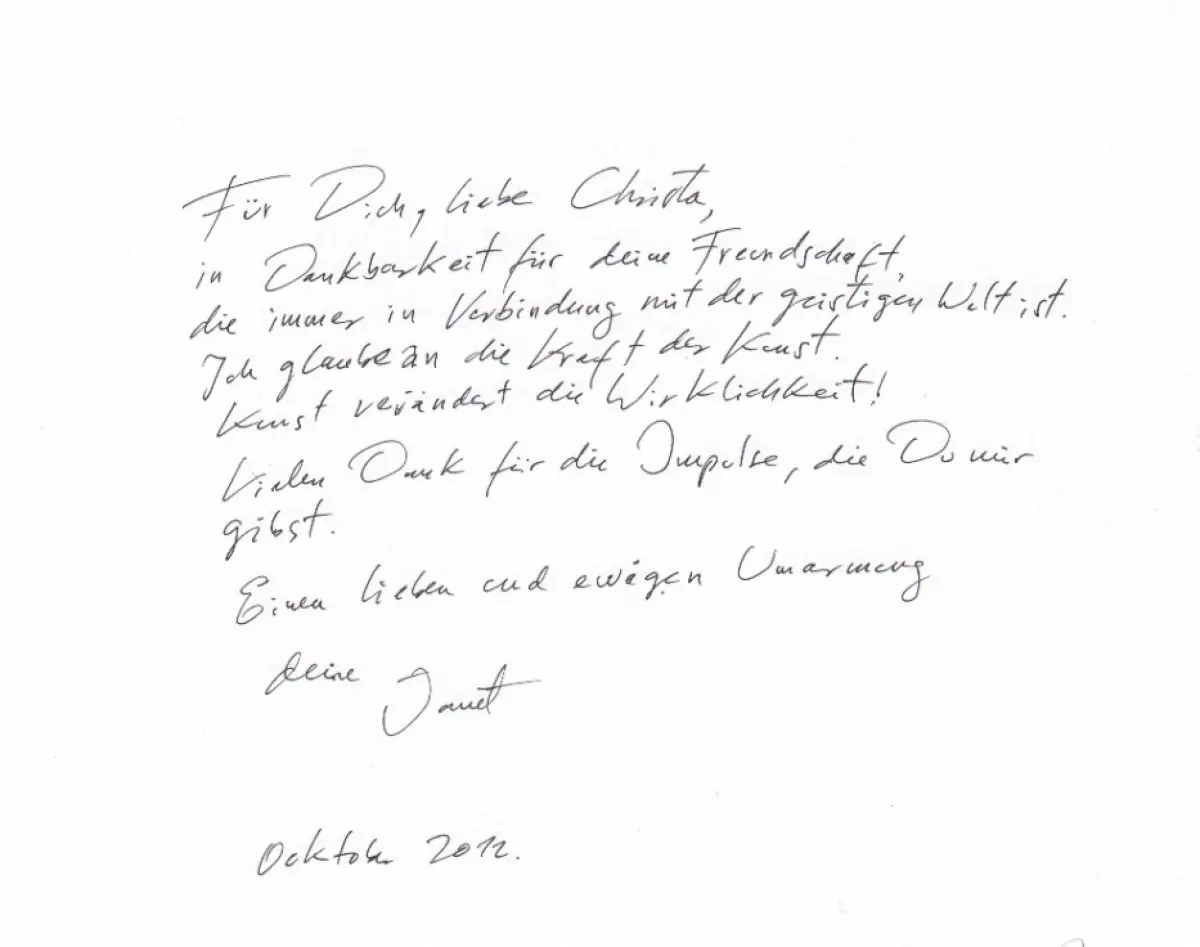 Für Dich, liebe Christa,
in Dankbarkeit für deine Freundschaft,
die immer in Verbindung mit der geistigen Welt ist.
Ich glaube an die Kraft der Kunst.
Kunst verändert die Wirklichkeit!
Vielen Dank für die Impulse, die Du mir
gibst.
Einen lieben und ewigen Umarmung
deine Janet
Ocktober 2012.